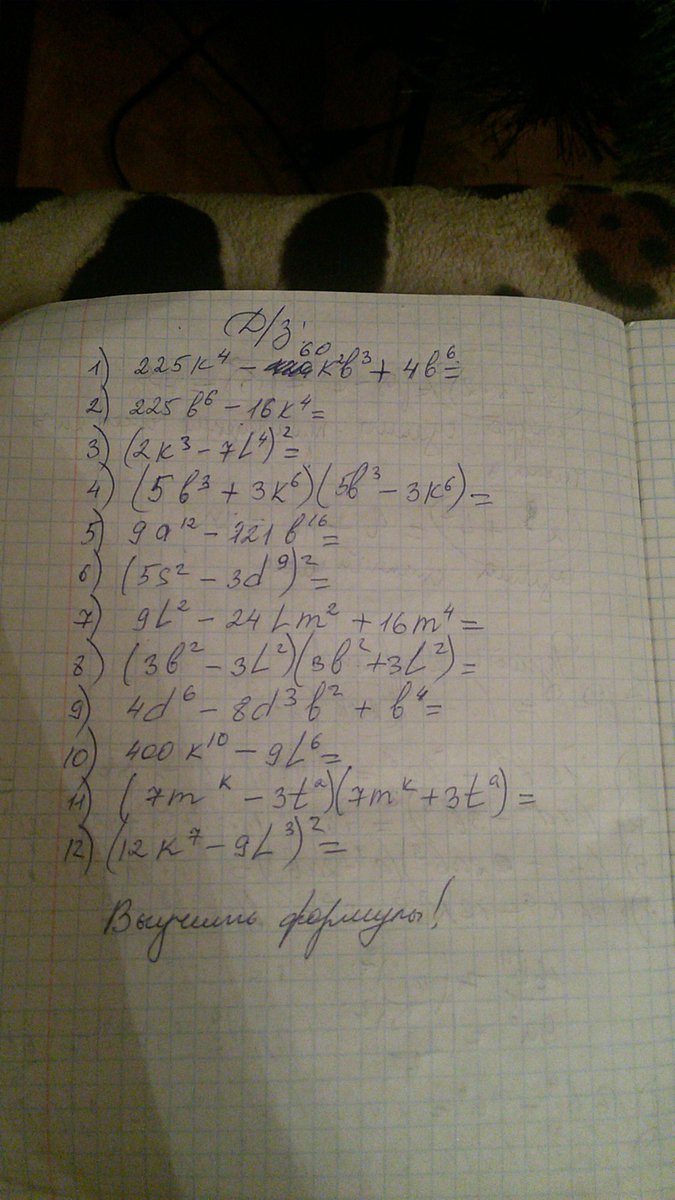 Д/з:
1) 225к⁴ - 60к²в³ + 4в⁶ =
2) 225в⁶ - 16к⁴ =
3) (2к³ - 7L⁴)² =
4) (5в³ + 3к⁶)(5в³ - 3к⁶) =
5) 9a¹² - 121в¹⁶ =
6) (5s² - 3d⁹)² =
7) 9L² - 24Lm² + 16m⁴ =
8) (3в² - 3L²)(3в² + 3L²) =
9) 4d⁶ - 8d³в² + в⁴ =
10) 400к¹⁰ - 9L⁶ =
11) (7mᵏ - 3tᵃ)(7mᵏ + 3tᵃ) =
12) (12к⁷ - 9L³)² =
Выучить формулы!